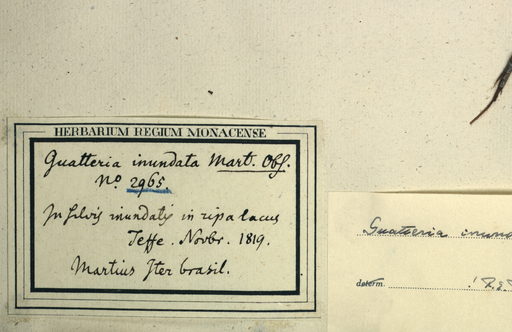 HERBARIUM REGIUM MONACENSE
Guatteria inundata Mart. Obs.
No. 2965.
In silvis inundatis in ripa lacus
Teffe. Novbr. 1819.
Martius Iter brasil.
Guatteria inund
determ.